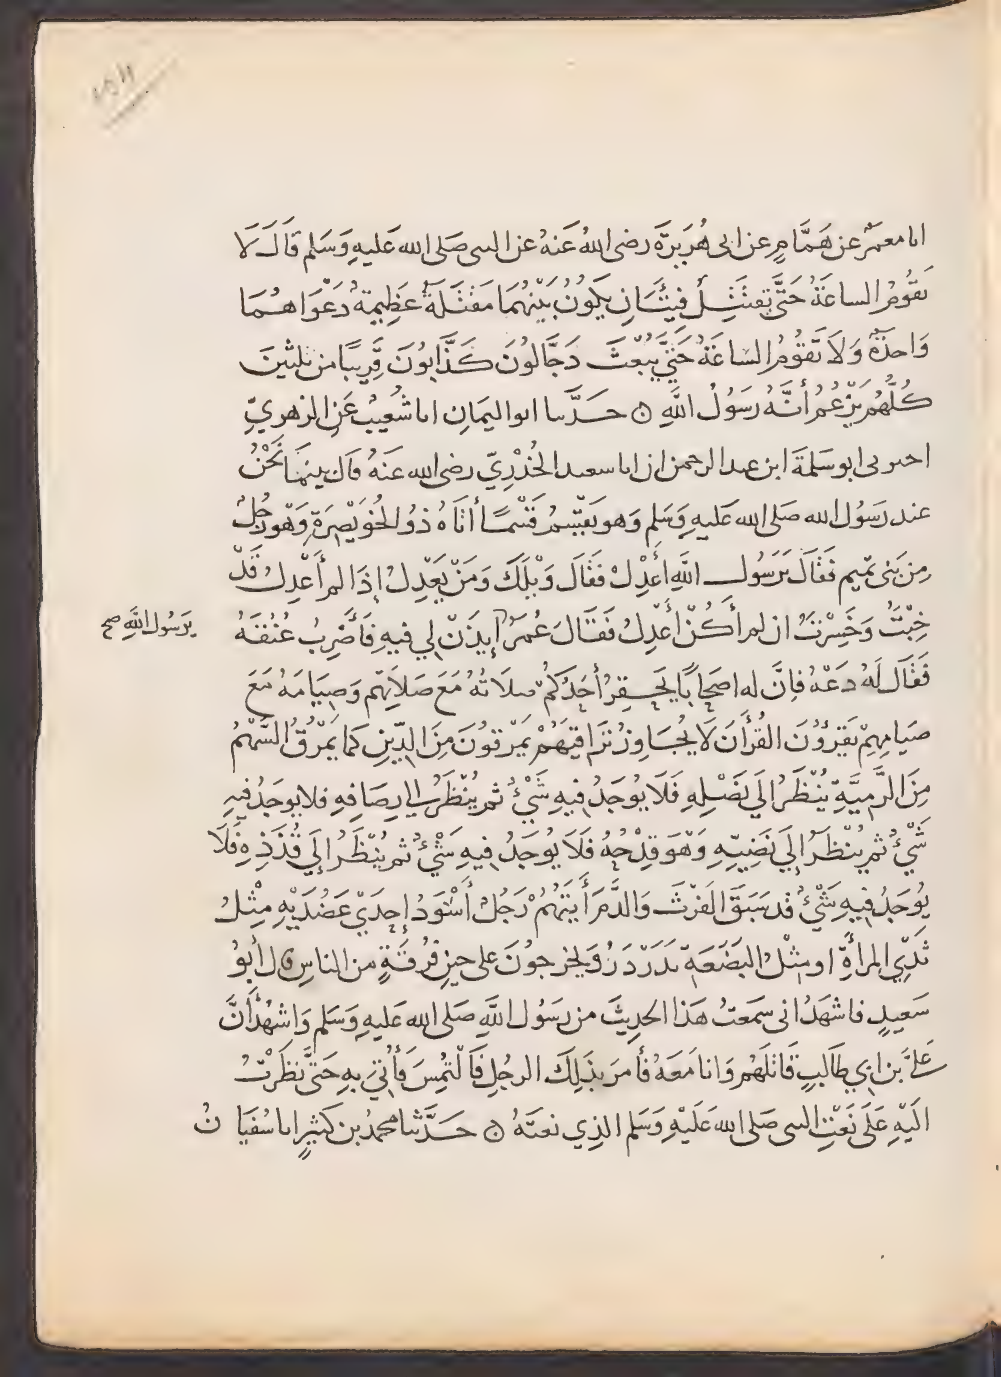 انا معمر عن هَمَّامٍ عن ابى هُرَيرَةَ رضى اللهُ عَنهُ عن النبى صَلى الله عَليهِ وَسَلم قَالَ لَا
تقُومُ الساعَةُ حَتَّى تقتَتِلَ فِئَتَانِ يَكونُ بَيْنهُمَا مَقتَلَةٌ عَظِيمةٌ دَعْوَاهُمَا
وَاحدَةٌ وَلَا تقُومُ السَاعَةُ حَتَّى يُبْعَثَ دَجَّالُونَ كَذَّابُونَ قَرِيبًا من ثلثينَ
كُلُّهُم يَزْعُمُ أنَّهُ رَسُولُ اللَّهِ ۞ حَدَّثنا ابو اليَمَانِ انا شُعَيبٌ عَنِ الزهريِّ
اخبرنى ابو سَلمَةَ ابن عبد الرحمن ان ابا سعيد الخُدْرِيَّ رضى الله عَنهُ قال بينمَا نَحْنُ
عند رَسُول الله صَلى الله عَليهِ وَسَلم وَهو يَقسِمُ قَسْمًا أتَاهُ ذُو الخُوَيْصِرَةِ وَهْو رَجُلٌ
مِن بَنى تمِيم فقَالَ يَرَسُولَ اللَّهِ اعْدِلْ فقَالَ وَيْلَكَ وَمَنْ يَعْدِلُ إذَا لم أعْدِلْ قَدْ
خِبْتُ وَخَسِرْتُ ان لم أكُنْ أعْدِلُ فَقَالَ عُمَرُ إيذَنْ لِي فيهِ فَأضْرِبُ عُنُقَهُ
يَرَسُولَ اللَّهِ صح
فَقَالَ لَهُ دَعْهُ فإنَّ له اصحَابًا يَحْقِرُ أحَدُكُمْ صلَاتَهُ مَعَ صَلَاتِهِم وَصِيَامَهُ مَعَ
صيَامِهِمْ يَقرَؤُنَ القُرْأَنَ لَا يُجَاوِزُ تَرَاقِيَهُمْ يَمْرقونَ مِنَ الدِّينِ كما يَمْرُقُ السَّهْمُ
مِنَ الرَّمِيَّةِ يُنْظَرُ إلَى نَصْلِهِ فَلَا يُوجَدُ فِيهِ شَىْءٌ ثم يُنْظَرُ إلى رِصَافِهِ فلا يوجَدُ فيهِ
شَىْءٌ ثم يُنْظَرُ إلَى نَضِيِّهِ وَهْوَ قِدْحُهُ فَلَا يُوجَدُ فيهِ شَىْءٌ ثم يُنْظَرُ إلَى قُذَذِهِ فَلَا
يُوجَدُ فِيهِ شَىْءٌ قد سَبَقَ الفَرْثَ وَالدَّمَ أيَتُهُمْ رَجُلٌ أَسْوَدُ إحدَىْ عَضُدَيْهِ مِثْلُ
ثَدْيِ المرأةِ او مثْلُ البَضْعَةِ تدَرْدَرُ وَيخرجُونَ على حينِ فُرْقَةٍ من الناسِ قال أبُو
سَعِيدٍ فاشهَدُ انى سَمعتُ هَذا الحدِيثَ من رَسُول اللَّهِ صَلى الله عَليهِ وَسَلم وَاشهَدُ أنَّ
عَلىَّ بن ابِي طَالبٍ قَاتلَهُم وَانا مَعَهُ فَأمَرَ بذَلِكَ الرجُلِ فَالْتُمِسَ فَأُتِىَ بهِ حَتَّى نظَرْتُ
اليْهِ عَلَى نَعْتِ النبى صَلى الله عَلَيْهِ وَسَلم الذِي نعتَهُ ۞ حَدَّثنا محمدُ بن كَثيرٍ انا سُفيَانُ